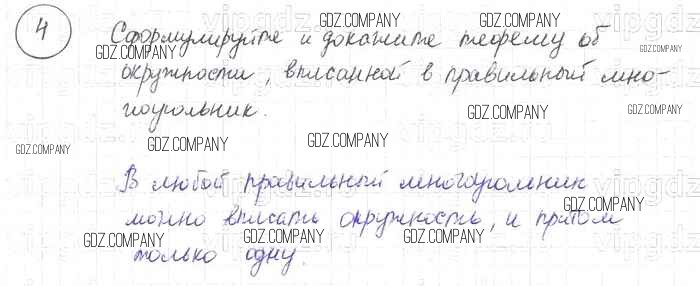 4
Сформулируйте и докажите теорему об
окружности, вписанной в правильный мно-
гоугольник.
В любой правильный многоугольник
можно вписать окружность, и притом
только одну.
GDZ.COMPANY
GDZ.COMPANY
GDZ.COMPANY
GDZ.COMPANY
GDZ.COMPANY
GDZ.COMPANY
GDZ.COMPANY
GDZ.COMPANY
GDZ.COMPANY
GDZ.COMPANY
GDZ.COMPANY
GDZ.COMPANY
GDZ.COMPANY
GDZ.COMPANY